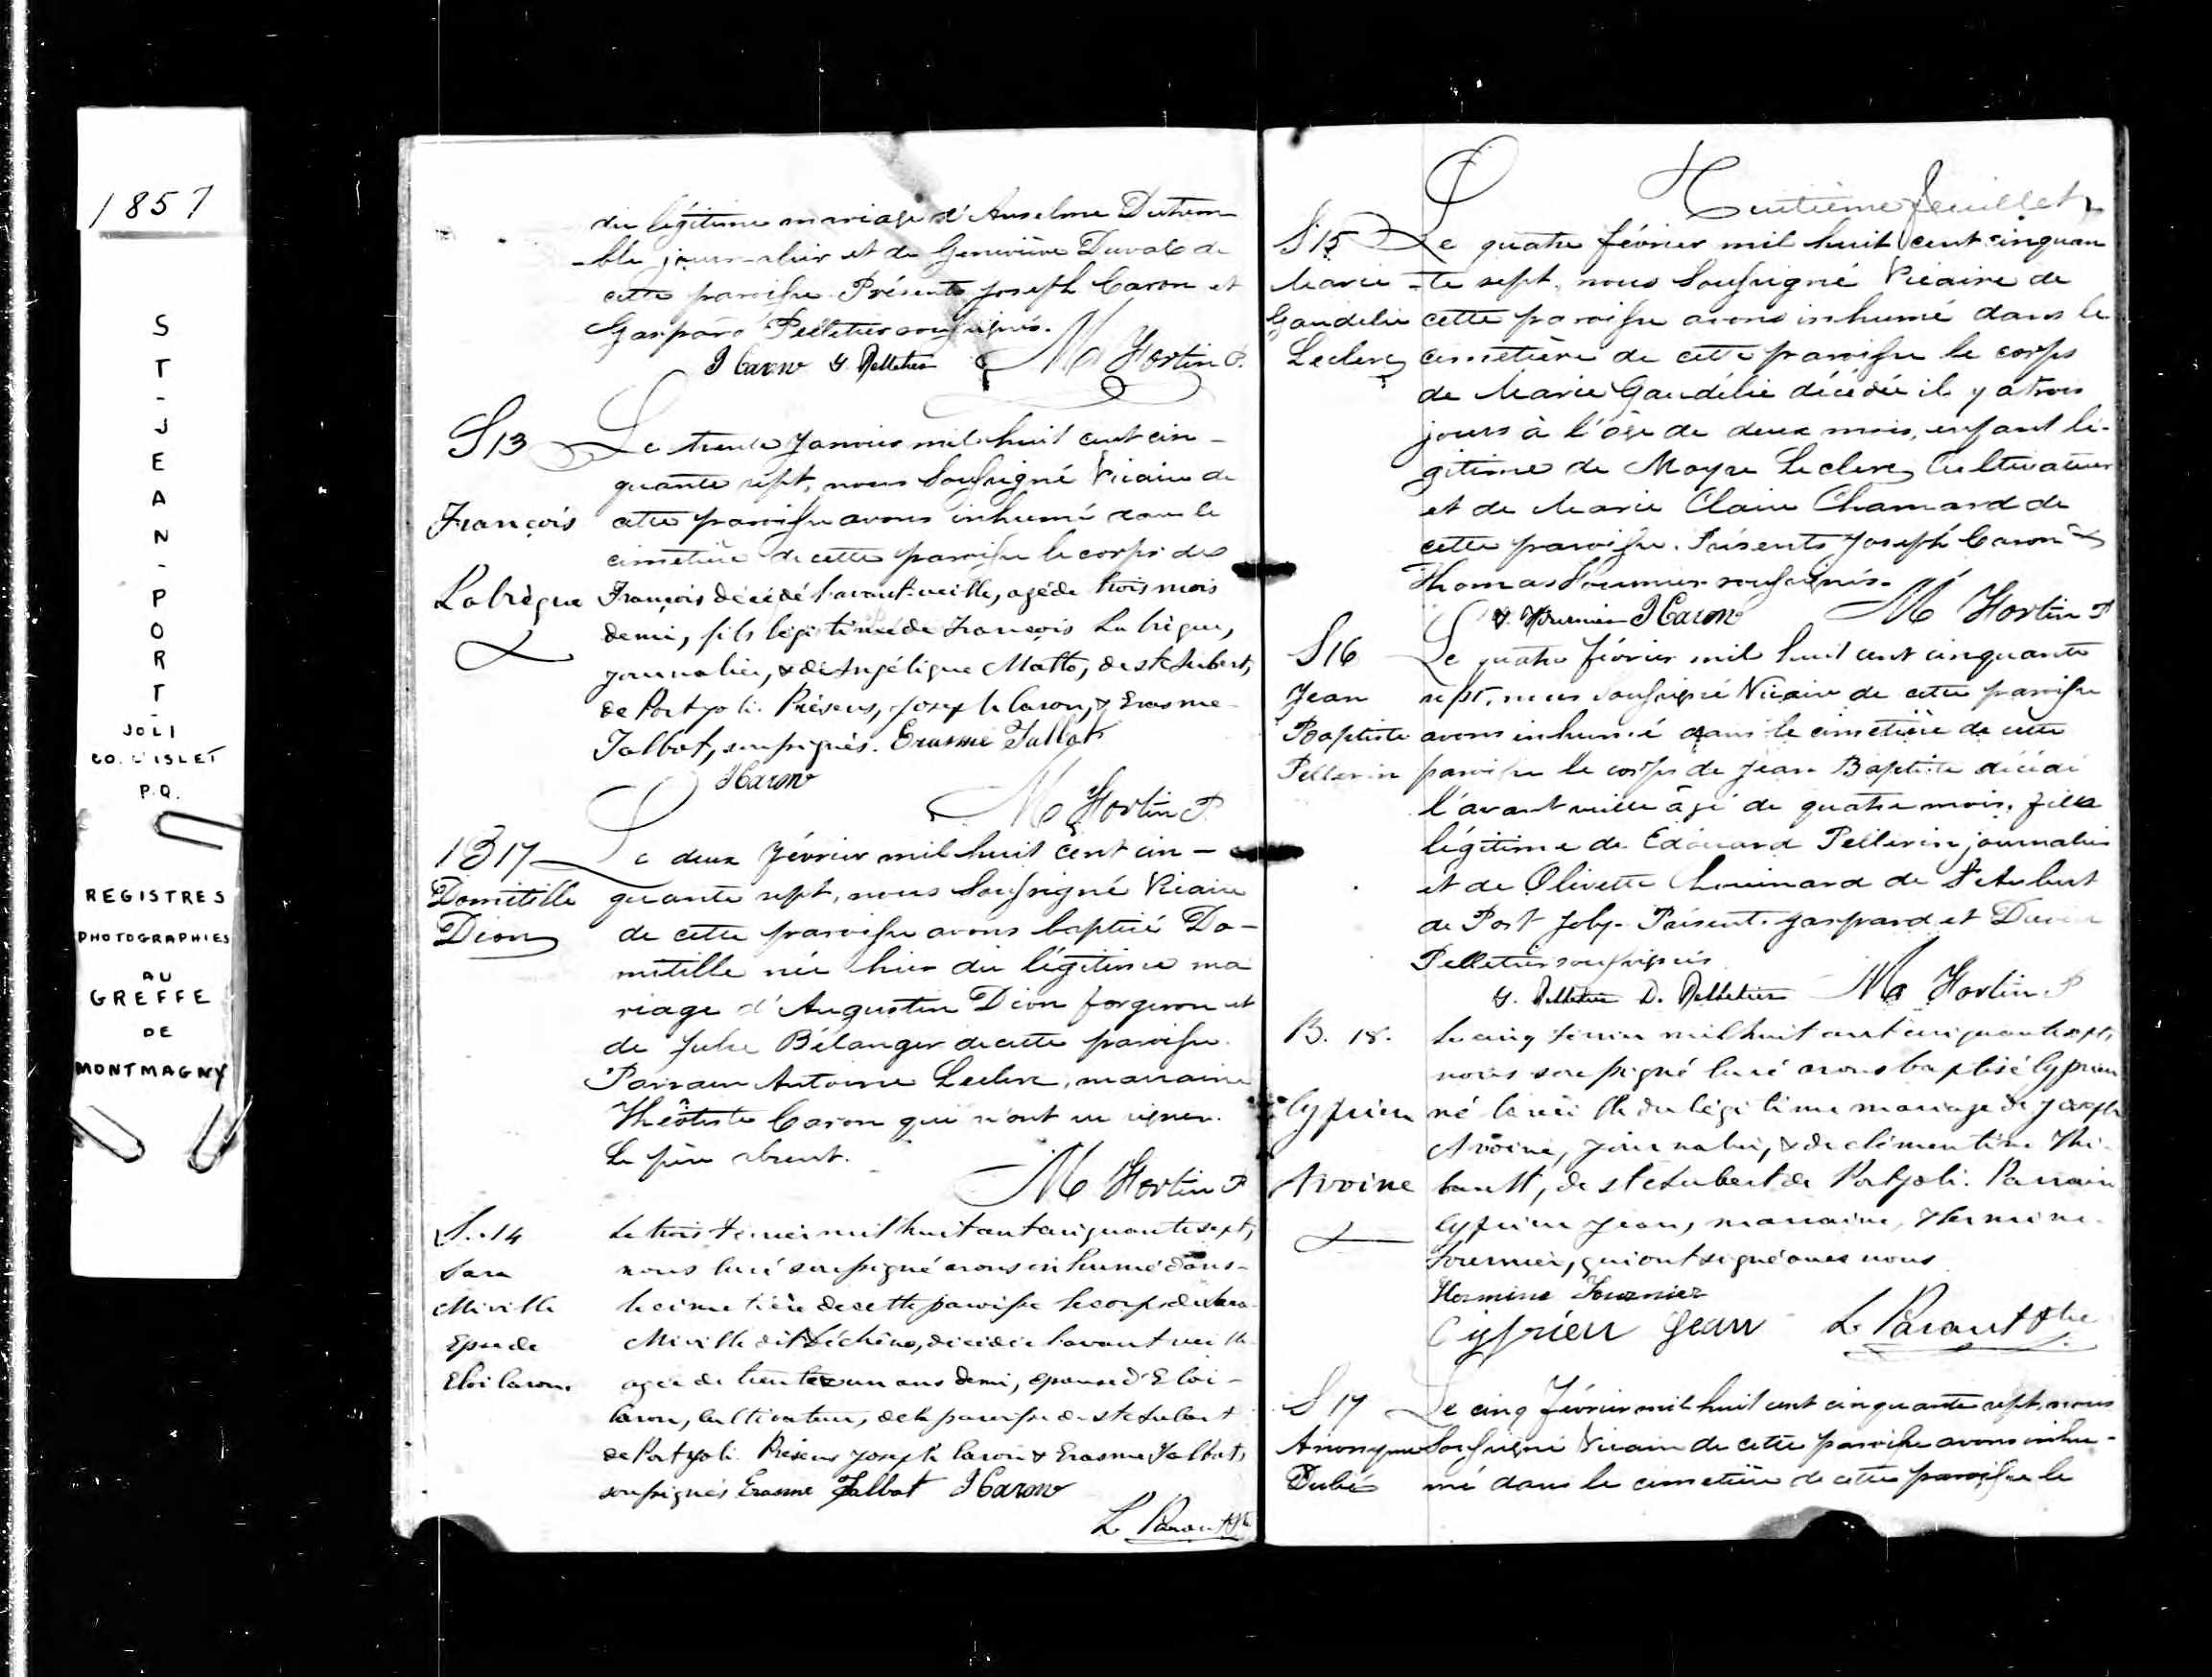 1857
ST-JEAN-PORT-
JOLI
CO. L'ISLET
P.Q.
REGISTRES
PHOTOGRAPHIES
AU
GREFFE
DE
MONTMAGNY
du légitime mariage d'Anselme Dutrem-
-ble journalier et de Geneviève Duval de
cette paroisse. Présents Joseph Caron et
Gaspard Pelletier soussignés.
J Caron G. Pelletier M Fortin P.
S 13 Le trente janvier mil huit cent cin-
quante sept, nous Soussigné Vicaire de
François cette paroisse avons inhumé dans le
cimetière de cette paroisse le corps de
Labrègue François décédé l'avant-veille, agé de trois mois
demi, fils légitime de François Labrègue,
journalier, & de Angélique Matte, de St Aubert,
de Portjoli. Présens, Joseph Caron, & Erasme
Talbot, soussignés. Erasme Talbot
J Caron
M Fortin P.
B 17 Le deux février mil huit cent cin-
Domitille quante sept, nous Soussigné Vicaire
Dion de cette paroisse avons baptisé Do-
mitille née hier du légitime ma
riage d'Augustin Dion forgeron et
de Julie Bélanger de cette paroisse.
Parrain Antoine Leclerc, marraine
Théotiste Caron qui n'ont su signer.
Le père absent.
M Fortin P
S. 14 Le trois fevrier mil huit cent cinquante sept,
Sara nous curé soussigné avons inhumé dans
Miville le cimetière de cette paroisse le corps de Sara
Epse de Miville dit Déchêne, décédée l'avant veille
Eloi Caron agée de trente & un ans demi, épouse d'Eloi
Caron, cultivateur, de la paroisse de St Aubert
de Portjoli. Présens Joseph Caron & Erasme Talbot,
soussignés Erasme Talbot J Caron
L. Parant Ptr
Huitième feuillet
S 15 Le quatre février mil huit cent cinquan
Marie -te sept, nous Soussigné Vicaire de
Gaudélie cette paroisse avons inhumé dans le
Leclerc cimetière de cette paroisse le corps
de Marie Gaudélie décédée il y a trois
jours à l'âge de deux mois, enfant lé-
gitime de Moyse Leclerc Cultivateur
et de Marie Claire Chamard de
cette paroisse. Présents Joseph Caron &
Thomas Fournier soussignés.
T. Fournier J Caron M Fortin P
S 16 Le quatre février mil huit cent cinquante
Jean sept, nous soussigné Vicaire de cette paroisse
Baptiste avons inhumé dans le cimetière de cette
Pellerin paroisse le corps de Jean Baptiste décédé
l'avant veille âgé de quatre mois, fils
légitime de Edouard Pellerin journalier
et de Olivette Chouinard de St Aubert
de Port Joly. Présents Gaspard et David
Pelletier soussignés
G. Pelletier D. Pelletier M Fortin P
B. 18. Le cinq fevrier mil huit cent cinquante sept,
nous soussigné curé avons baptisé Cyprien
Cyprien né la veille du légitime mariage de Joseph
Avoine, journalier, & de Clémentine Thi-
Avoine bault, de St Aubert de Portjoli. Parrain
Cyprien Jean, marraine, Hermine
Fournier, qui ont signé avec nous
Hermine Fournier
Cyprien Jean L. Parant Ptre
S 17 Le cinq février mil huit cent cinquante sept, nous
Anonyme Soussigné Vicaire de cette paroisse avons inhu-
Dubé mé dans le cimetière de cette paroisse le